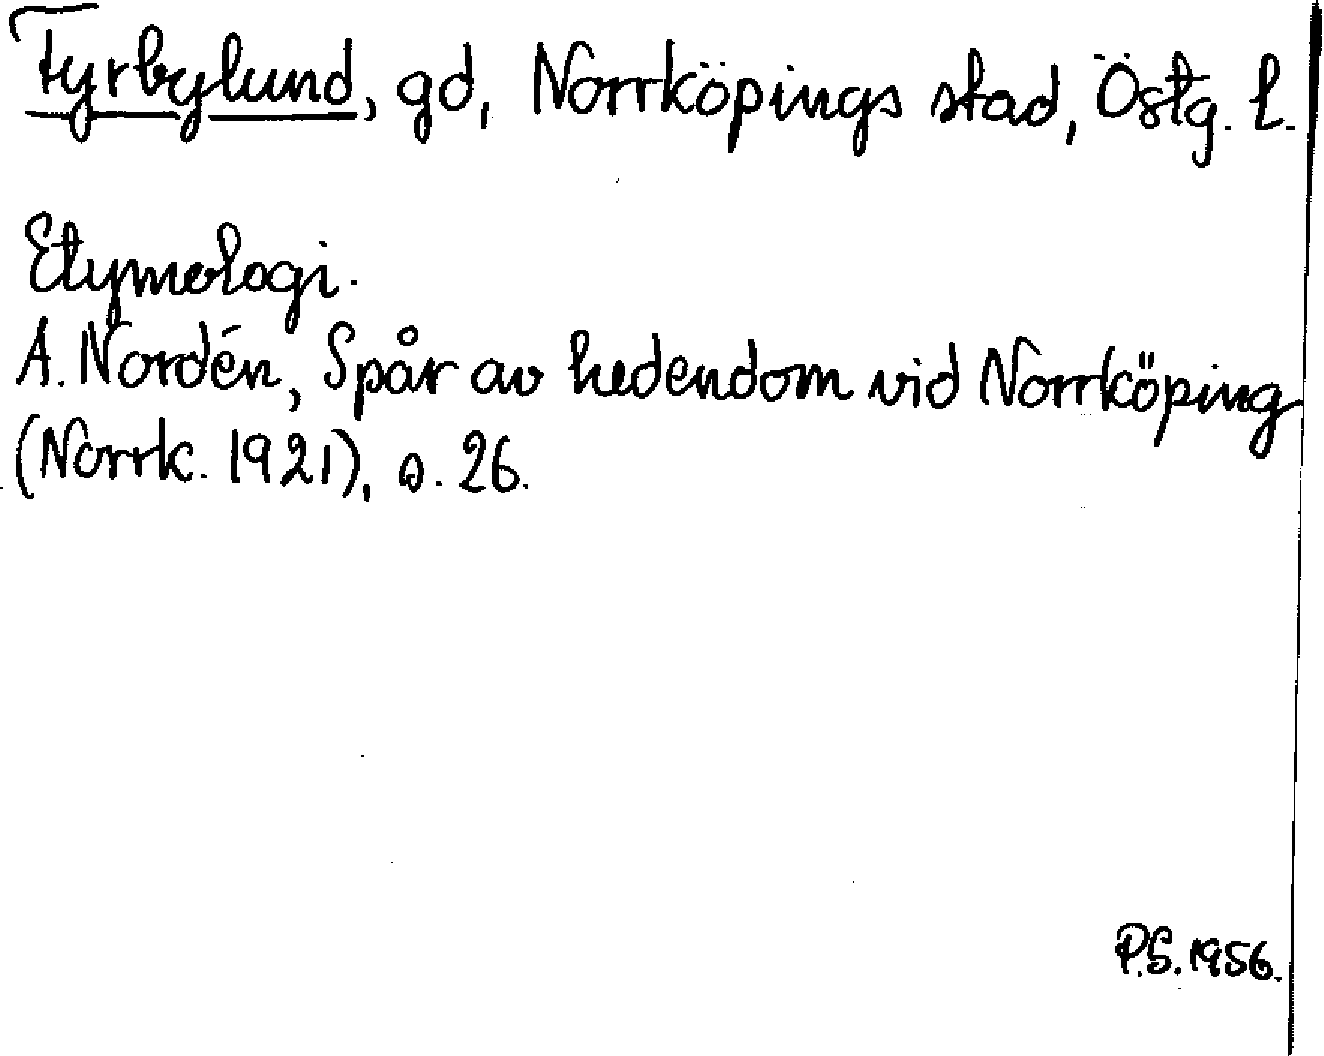 Fyrbylund, gd, Norrköpings stad, Östg. l.
Etymologi.
A. Nordén, Spår av hedendom vid Norrköping
(Norrk. 1921), s. 26.
P.S. 1956.